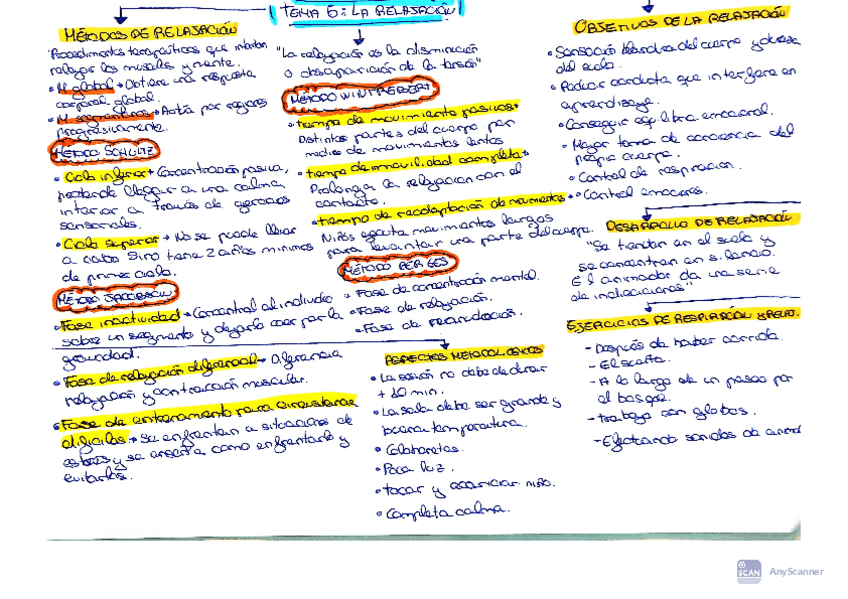 TEMA 6: LA RELAJACIÓN
MÉTODOS DE RELAJACIÓN
"Procedimientos terapéuticos que intentan
relajar los musculos y mente.
• M. global → Obtiene una respuesta
corporal global.
• M. segmentarios → Actúa por regiones
progresivamente.
MÉTODO SCHULTZ
• Ciclo inferior → Concentración pasiva,
pretende llegar a una calma
interior a través de ejercicios
sensoriales.
• Ciclo superior → No se puede llevar
a cabo sino tiene 2 años mínimos
de primer ciclo.
MÉTODO JACOBSON
• Fase inactividad → Concentrar al individuo
sobre un segmento y dejarlo caer por la
gravedad.
• Fase de relajación diferencial → Diferencia
relajación y contracción muscular.
• Fase de entrenamiento para circustancias
dificiles → Se enfrentan a situaciones de
estrés y se enseña como enfrentarlo y
evitarlos.
"La relajación es la disminución
o desaparición de la tensión"
MÉTODO WINTREBERT
• tiempo de movimiento pasivos:
Distintas partes del cuerpo por
medio de movimientos lentos
• tiempo de inmovilidad completa →
Prolonga la relajación con el
contacto.
• tiempo de readaptación de movimientos →
Niños ejecuta movimientos largos
para levantar una parte del cuerpo.
MÉTODO BERGES
• Fase de concentración mental.
• Fase de relajación.
• Fase de reanudación.
ASPECTOS METODOLÓGICOS
• La sesión no debe de durar
+ 10 min.
• La sala debe ser grande y
buena temperatura.
• Colchonetas.
• Poca luz.
• tocar y acariciar niño.
• Completa calma.
OBJETIVOS DE LA RELAJACIÓN
• Sensación blandura del cuerpo y dureza
del suelo.
• Reducir conducta que interfiere en
aprendizaje.
• Conseguir equilibrio emocional.
• Mayor toma de conciencia del
propio cuerpo.
• Control de respiración.
• Control emociones.
DESARROLLO DE RELAJACIÓN
"Se tienden en el suelo y
se concentran en silencio.
El animador da una serie
de indicaciones"
EJERCICIOS DE RESPIRACIÓN Y RELAJ.
- Después de haber corrido.
- El
- A lo largo de un paseo por
el bosque.
- Trabajo con globos.
- Ejecutando sonidos de animal
SCAN
AnyScanner